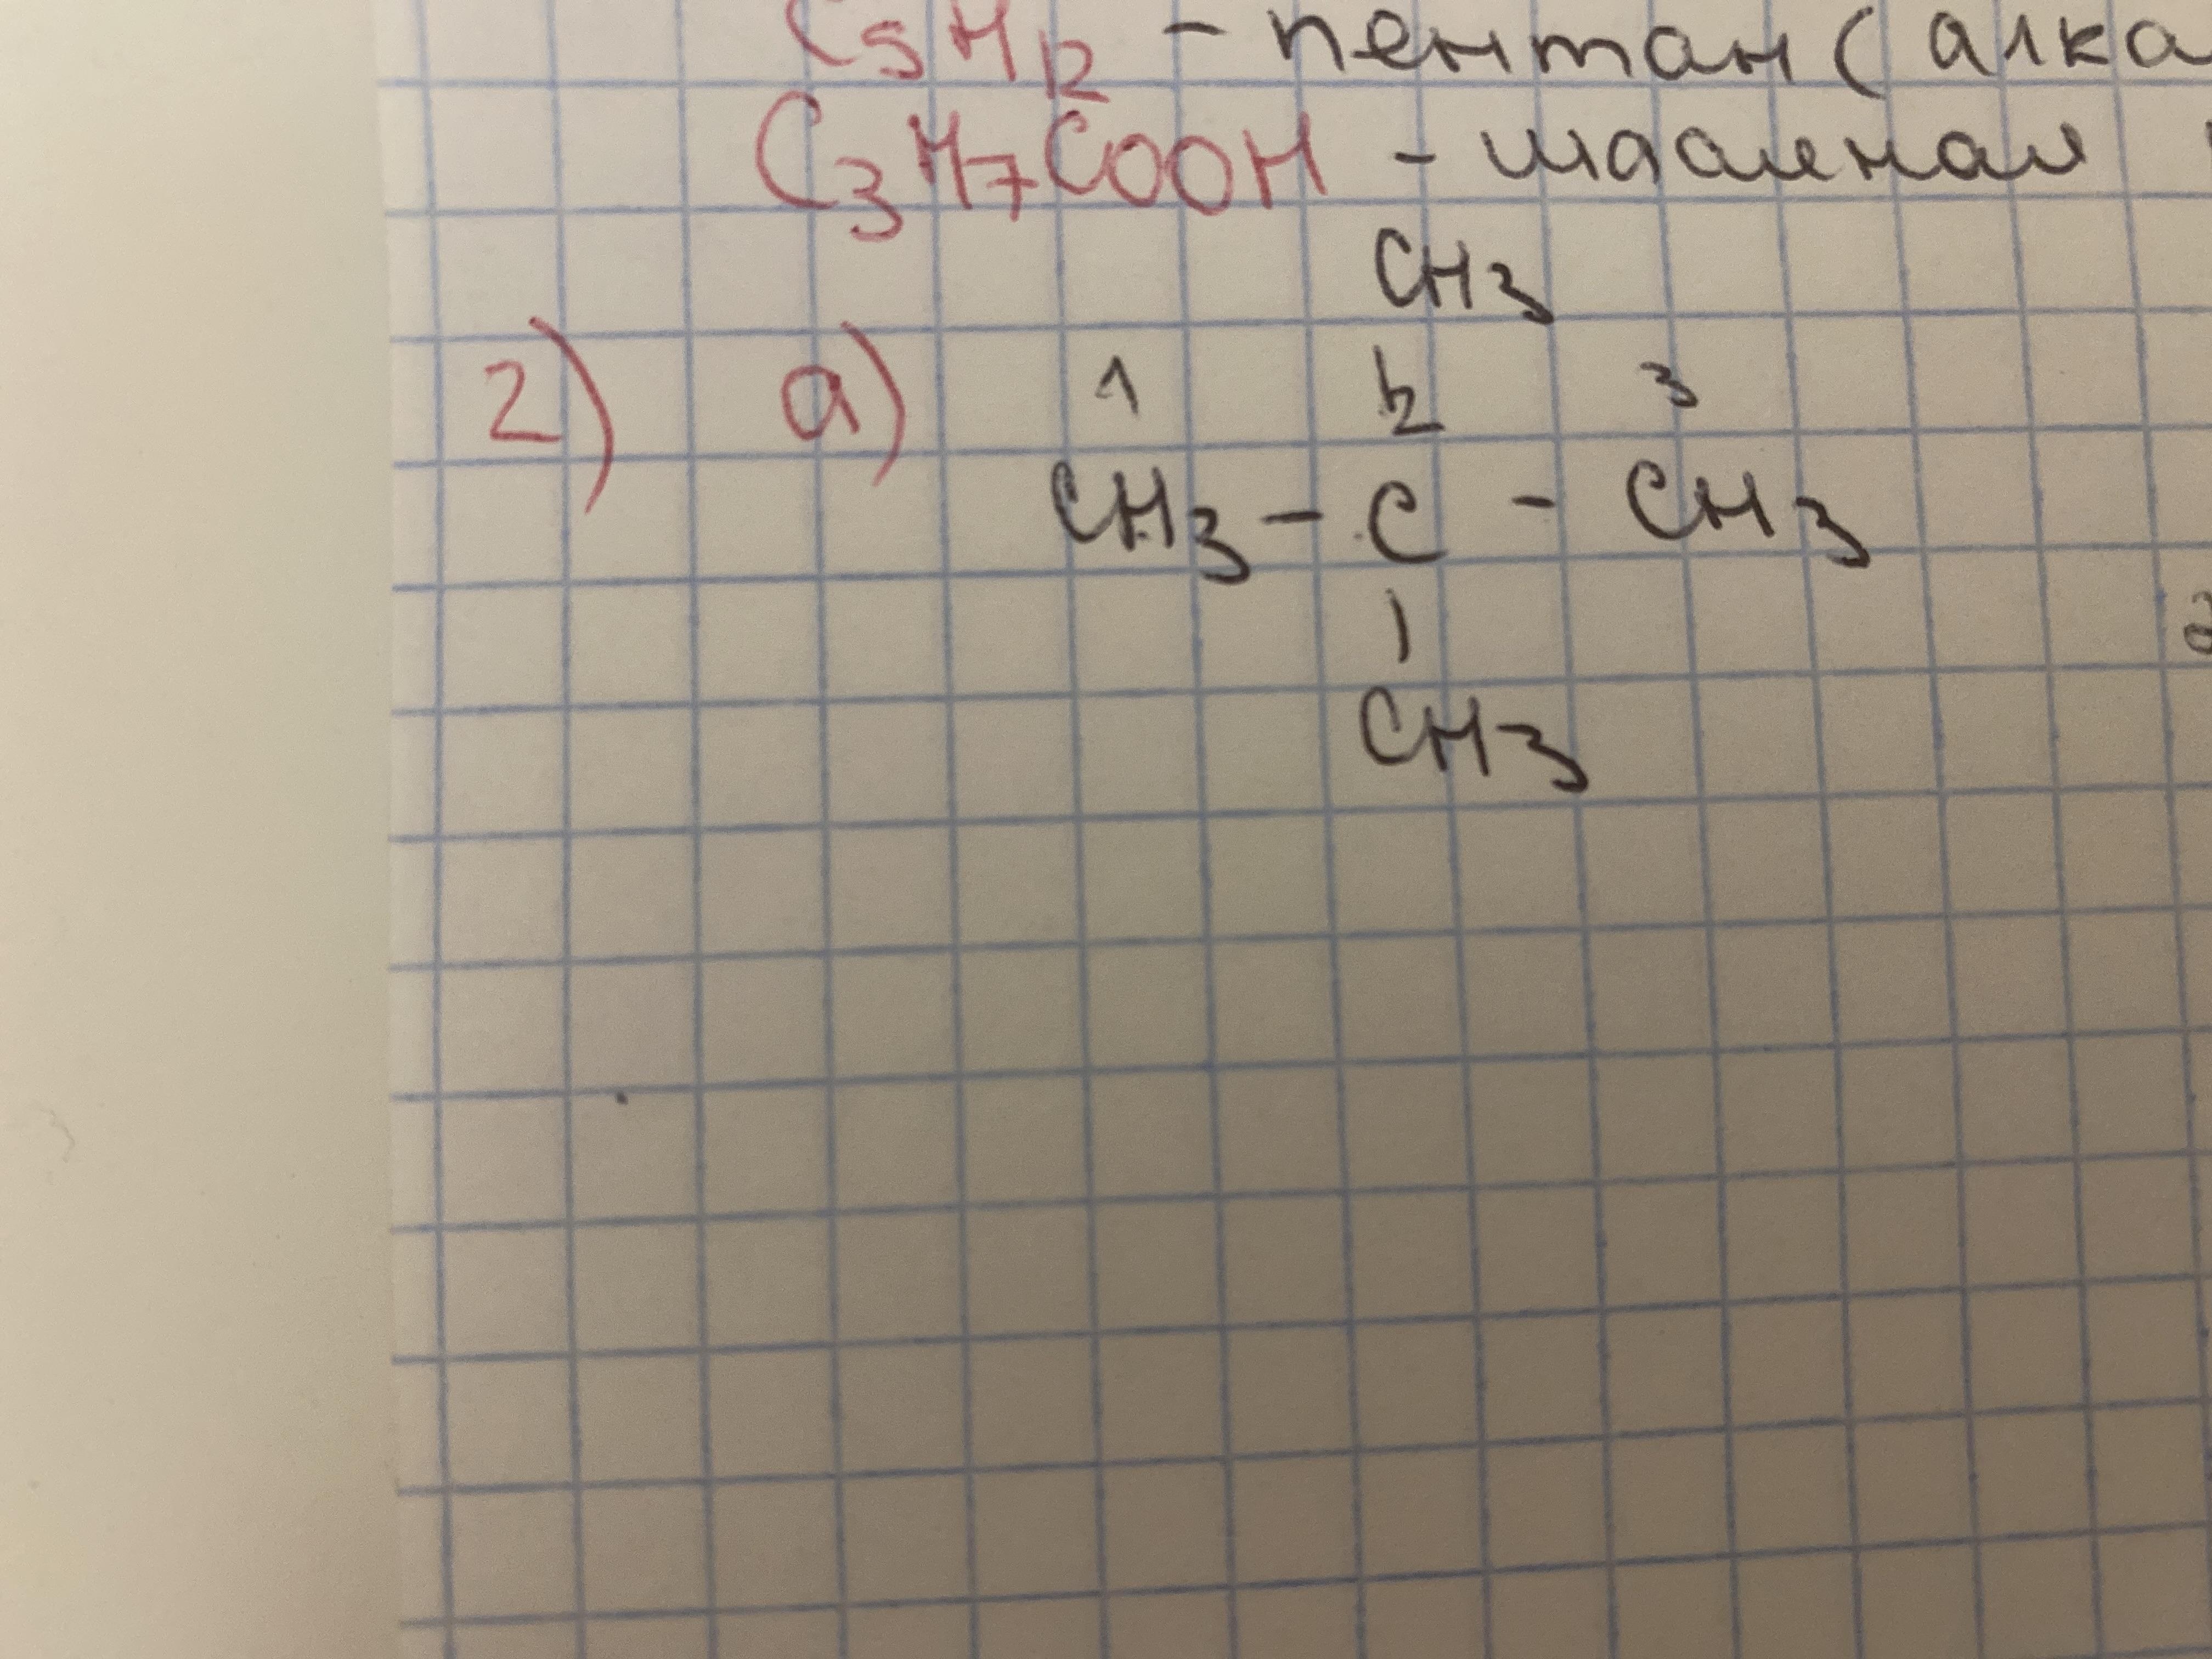 C5H12 - пентан (алка
C3H7COOH - масляная
CH3
2) а) 1 2 3
CH3 - C - CH3
|
CH3